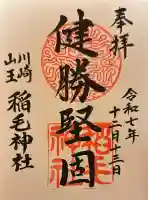 奉拝
令和七年
十二月十三日
健勝堅固
川崎
山王
稲毛神社